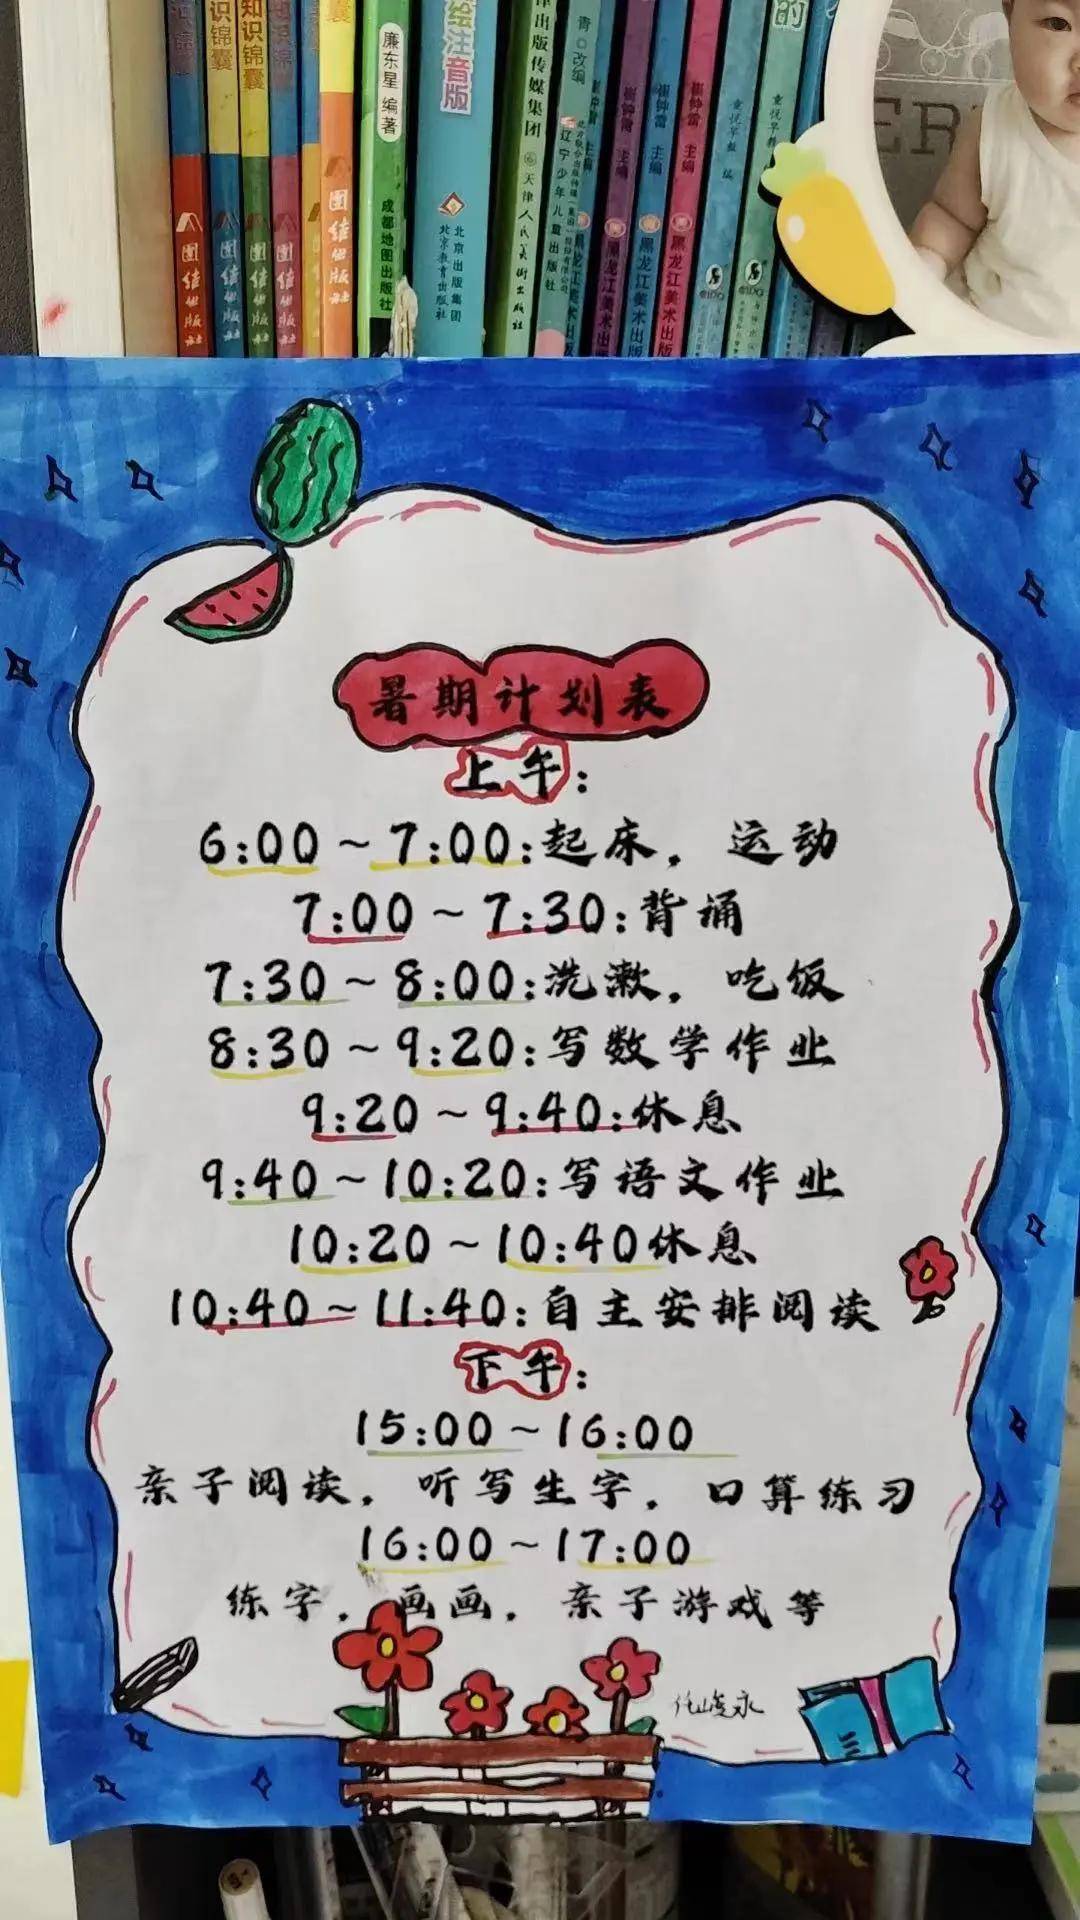 识锦囊
知识锦囊
识锦囊
团结出版社
团结出版社
团结出版社
团结出版社
团结出版社
廉东星 编著
成都地图出版社
绘注音版
北京出版集团
北京教育出版社
津出版传媒集团
天津人民美术出版社
青 改编
辽宁少年儿童出版社
崔钟雷 主编
黑龙江美术出版
崔钟雷 主编
黑龙江美术出版
崔钟雷 主编
黑龙江美术出版
童悦早教 编
的
童悦早教
ER
暑期计划表
上午:
6:00~7:00:起床,运动
7:00~7:30:背诵
7:30~8:00:洗漱,吃饭
8:30~9:20:写数学作业
9:20~9:40:休息
9:40~10:20:写语文作业
10:20~10:40休息
10:40~11:40:自主安排阅读
下午:
15:00~16:00
亲子阅读,听写生字,口算练习
16:00~17:00
练字,画画,亲子游戏等